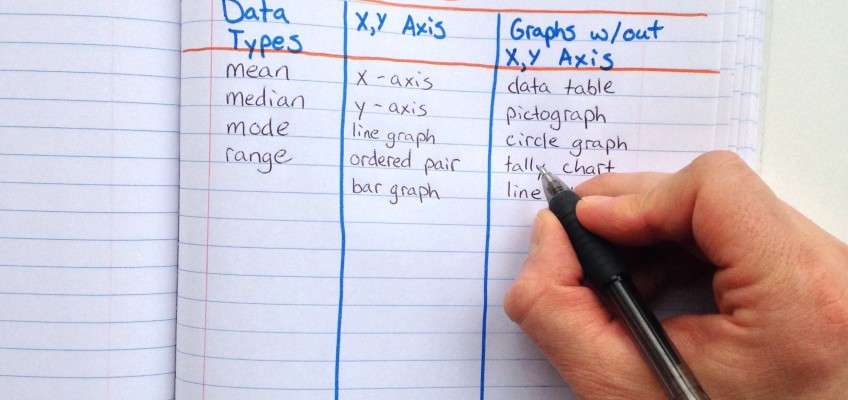 Data
Types
mean
median
mode
range
X,Y Axis
x-axis
y-axis
line graph
ordered pair
bar graph
Graphs w/out
X,Y Axis
data table
pictograph
circle graph
tally chart
line